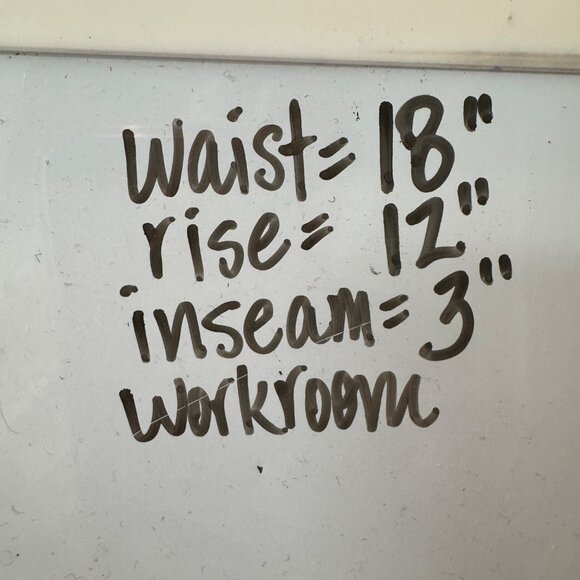 Waist= 18"
rise= 12"
inseam= 3"
Workroom